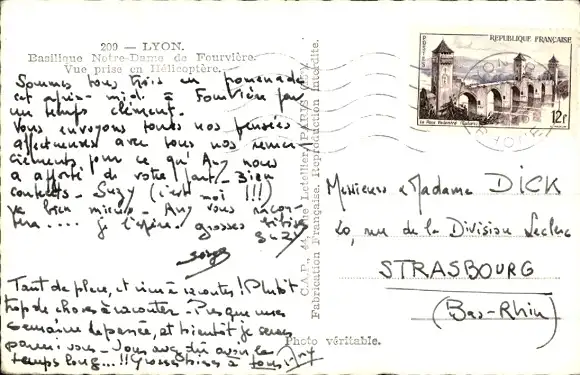 209 — LYON.
Basilique Notre-Dame de Fourvière.
Vue prise en Hélicoptère.
Sommes tous trois en promenade
cet après-midi à Fourvière par
un temps clément.
Vous envoyons toutes nos pensées
affectueuses avec tous nos remer-
ciements pour ce qu'Any nous
a apporté de votre part. Bien
contents - Suzy (c'est moi !!!)
va bien mieux - Any vous racon-
tera .... je l'espère. grosses bises
Suzy
Tant de place, et rien à raconter ! Plutôt
trop de choses à raconter - Presque une
semaine de passée, et bientôt je serai
parmi vous - Vous avez dû avoir le
temps long...!! Grosses bises à tous Any
C.A.P., 44, Rue Letellier, PARIS
Fabrication Française. Reproduction interdite.
Photo véritable.
POSTES
REPUBLIQUE FRANÇAISE
Le Pont Valentré Cahors
12f
Messieurs & Madame DICK
20, rue de la Division Leclerc
STRASBOURG
(Bas-Rhin)